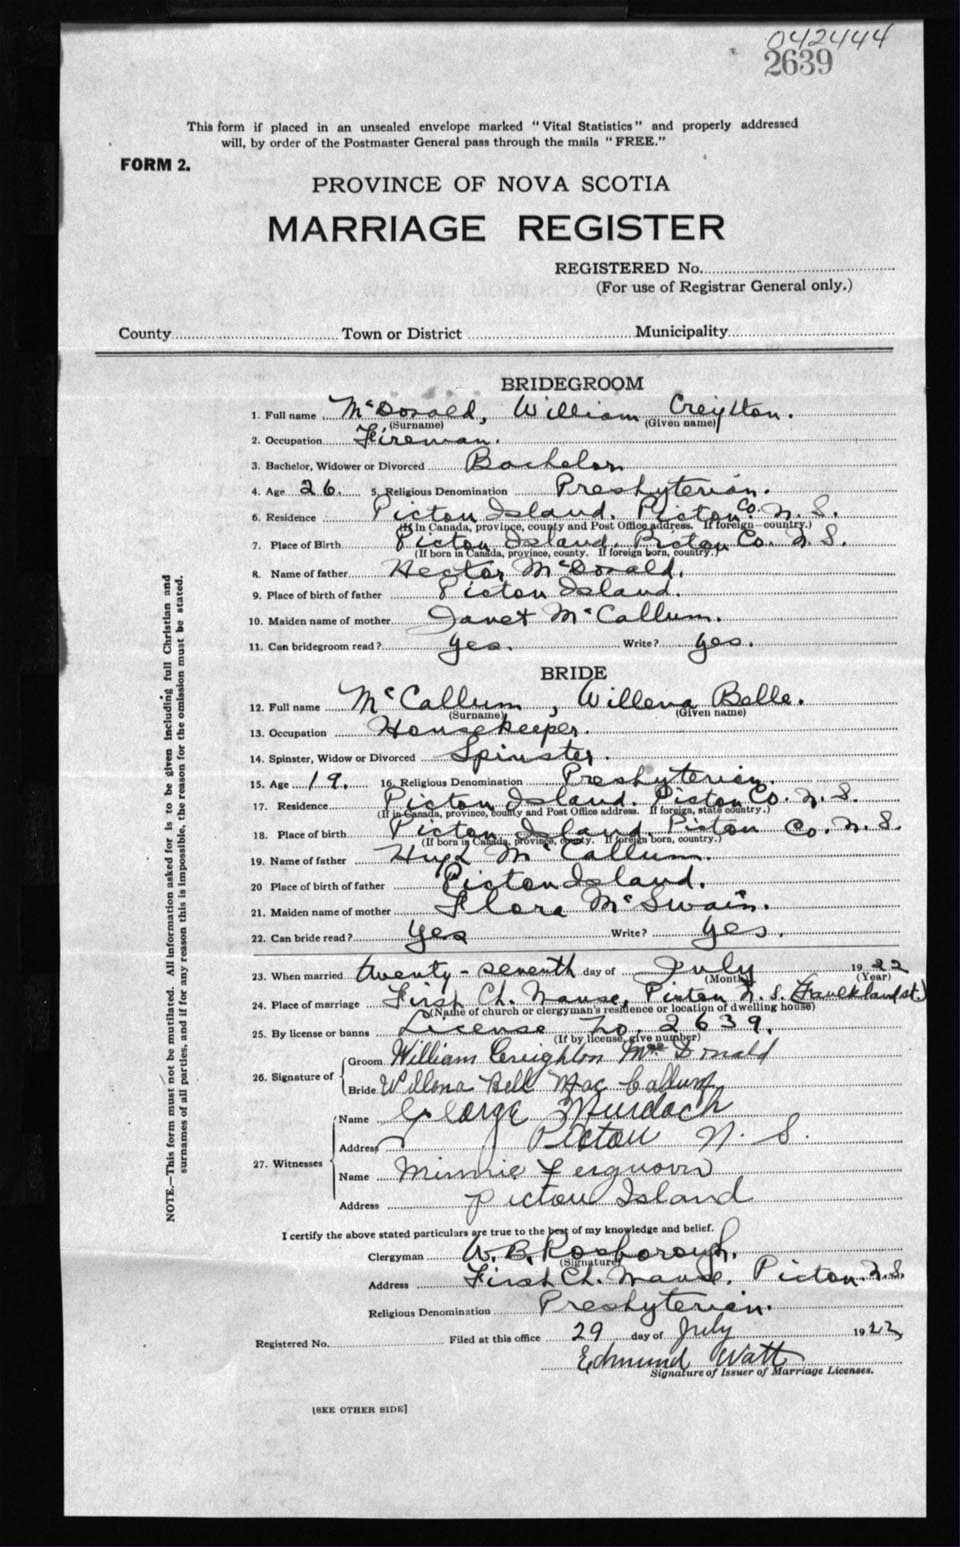 042444
2639
This form if placed in an unsealed envelope marked "Vital Statistics" and properly addressed
will, by order of the Postmaster General pass through the mails "FREE."
FORM 2.
PROVINCE OF NOVA SCOTIA
MARRIAGE REGISTER
REGISTERED No.
(For use of Registrar General only.)
County Town or District Municipality
BRIDEGROOM
1. Full name McDonald, William Creighton.
(Surname) (Given name)
2. Occupation Fireman.
3. Bachelor, Widower or Divorced Bachelor
4. Age 26. 5. Religious Denomination Presbyterian.
6. Residence Pictou Island. Pictou Co. N. S.
(If in Canada, province, county and Post Office address. If foreign—country.)
7. Place of Birth Pictou Island. Pictou Co. N. S.
(If born in Canada, province, county. If foreign born, country.)
8. Name of father Hector McDonald.
9. Place of birth of father Pictou Island.
10. Maiden name of mother Janet McCallum.
11. Can bridegroom read? Yes. Write? Yes.
BRIDE
12. Full name McCallum, Willena Belle.
(Surname) (Given name)
13. Occupation Housekeeper.
14. Spinster, Widow or Divorced Spinster.
15. Age 19. 16. Religious Denomination Presbyterian.
17. Residence Pictou Island. Pictou Co. N. S.
(If in Canada, province, county and Post Office address. If foreign, state country.)
18. Place of birth Pictou Island. Pictou Co. N. S.
(If born in Canada, province, county. If foreign born, country.)
19. Name of father Hugh McCallum.
20 Place of birth of father Pictou Island.
21. Maiden name of mother Flora McSwain.
22. Can bride read? Yes Write? Yes.
23. When married twenty-seventh day of July 1922
(Month) (Year)
24. Place of marriage First Ch. Manse, Pictou N. S. (Faulkland st.)
(Name of church or clergyman's residence or location of dwelling house)
25. By license or banns License no. 2639.
(If by license, give number)
26. Signature of Groom William Creighton MacDonald
Bride Willena Bell MacCallum
27. Witnesses Name George Murdoch
Address Pictou N. S.
Name Minnie Ferguson
Address Pictou Island
I certify the above stated particulars are true to the best of my knowledge and belief.
Clergyman W. B. Rosborough.
(Signature)
Address First Ch. Manse. Pictou. N. S.
Religious Denomination Presbyterian.
Registered No. Filed at this office 29 day of July 1922
Edmund Watt
Signature of Issuer of Marriage Licenses.
[SEE OTHER SIDE]
NOTE.—This form must not be mutilated. All information asked for is to be given including full Christian and
surnames of all parties, and if for any reason this is impossible, the reason for the omission must be stated.